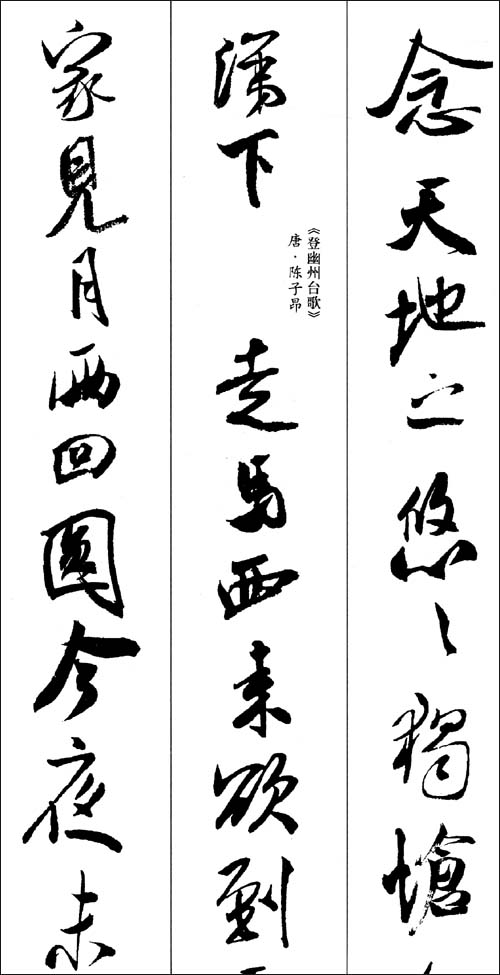 念天地之悠々獨愴
涕下
《登幽州台歌》
唐·陈子昂
走馬西来欲到
家見月兩回圓今夜未